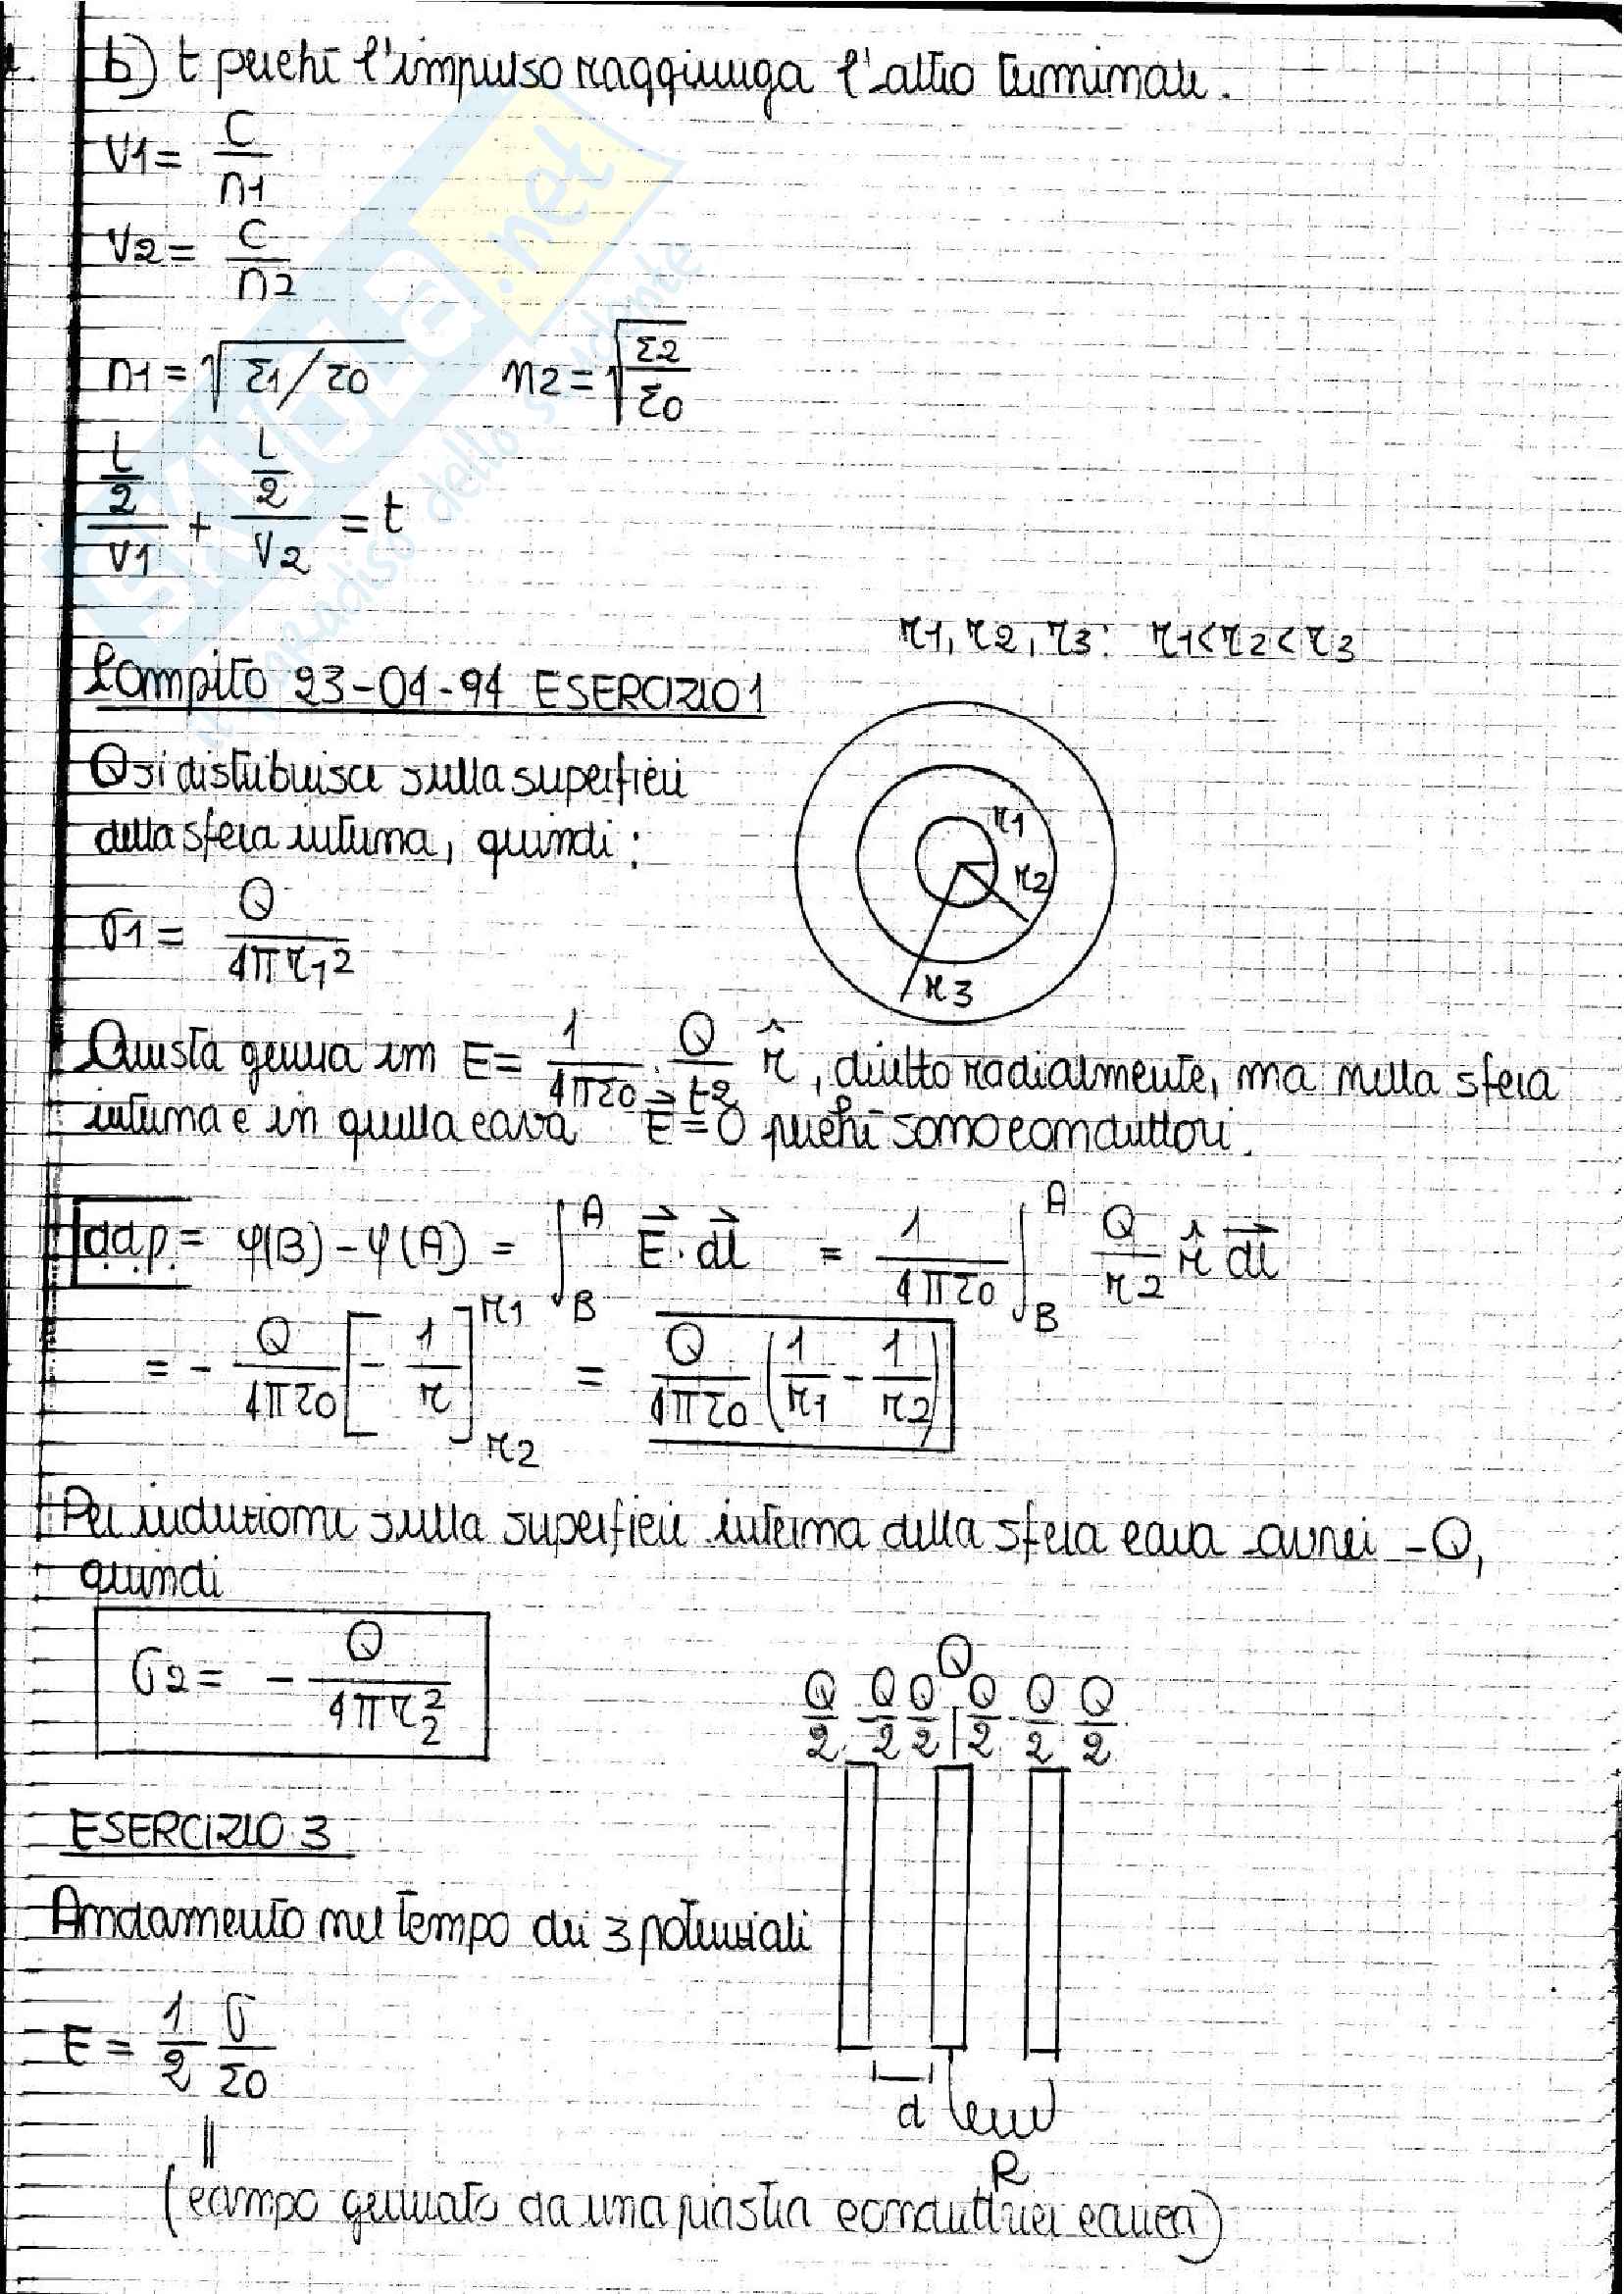 b) t perchè l'impulso raggiunga l'altro terminale.
V1 = C/n1
V2 = C/n2
n1 = √(ε1/ε0)  n2 = √(ε2/ε0)
(L/2)/V1 + (L/2)/V2 = t
r1, r2, r3: r1<r2<r3
Compito 23-04-94 ESERCIZIO 1
Q si distribuisce sulla superficie
della sfera interna, quindi:
σ1 = Q/(4πr1²)
r1
r2
r3
Questa genera un E = 1/(4πε0) · Q/r² r̂, diretto radialmente, ma nella sfera
interna e in quella cava E⃗=0 perchè sono conduttori.
d.d.p. = φ(B) - φ(A) = ∫_B^A E⃗·dl⃗ = 1/(4πε0) ∫_B^A Q/r² r̂ dl⃗
= - Q/(4πε0) [-1/r]_r2^r1 = Q/(4πε0) (1/r1 - 1/r2)
Per induzione sulla superficie interna della sfera cava avrei -Q,
quindi
σ2 = - Q/(4πr2²)
Q
Q/2 -Q/2 Q/2 Q/2 -Q/2 Q/2
ESERCIZIO 3
Andamento nel tempo dei 3 potenziali
E = 1/2 σ/ε0
d
R
(campo generato da una piastra conduttrice carica)
skuola.net
il paradiso dello studente